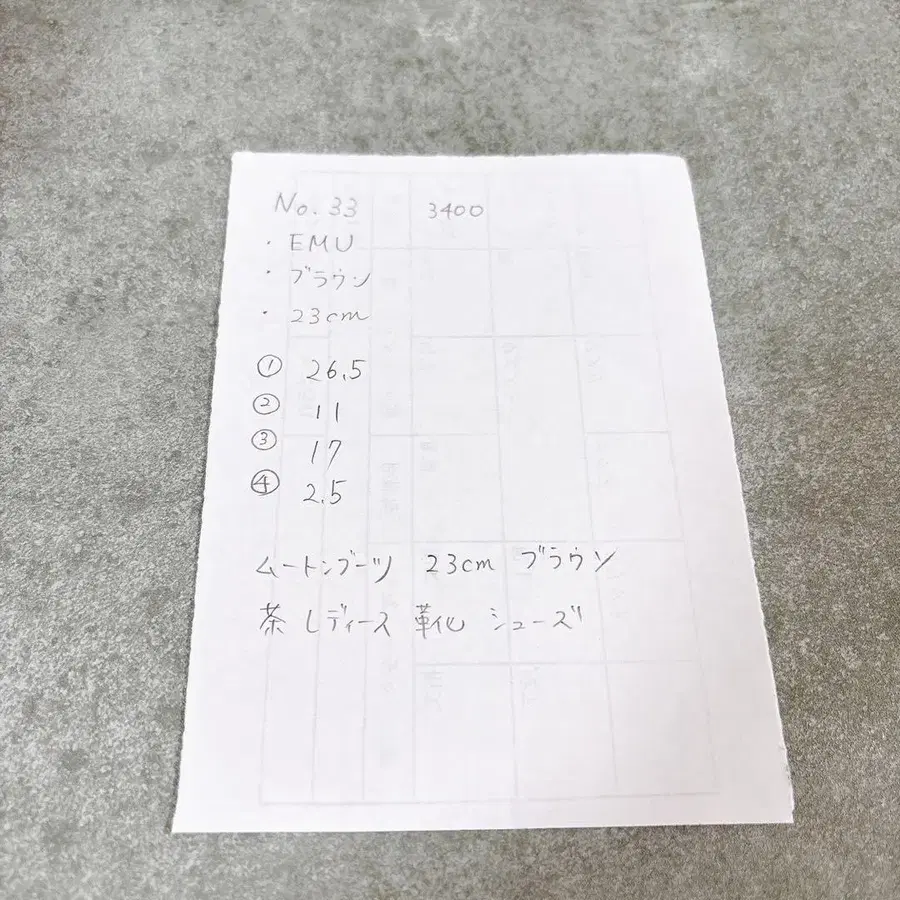 No. 33 3400
・EMU
・ブラウン
・23cm
① 26.5
② 11
③ 17
④ 2.5
ムートンブーツ 23cm ブラウン
茶 レディース 靴 シューズ